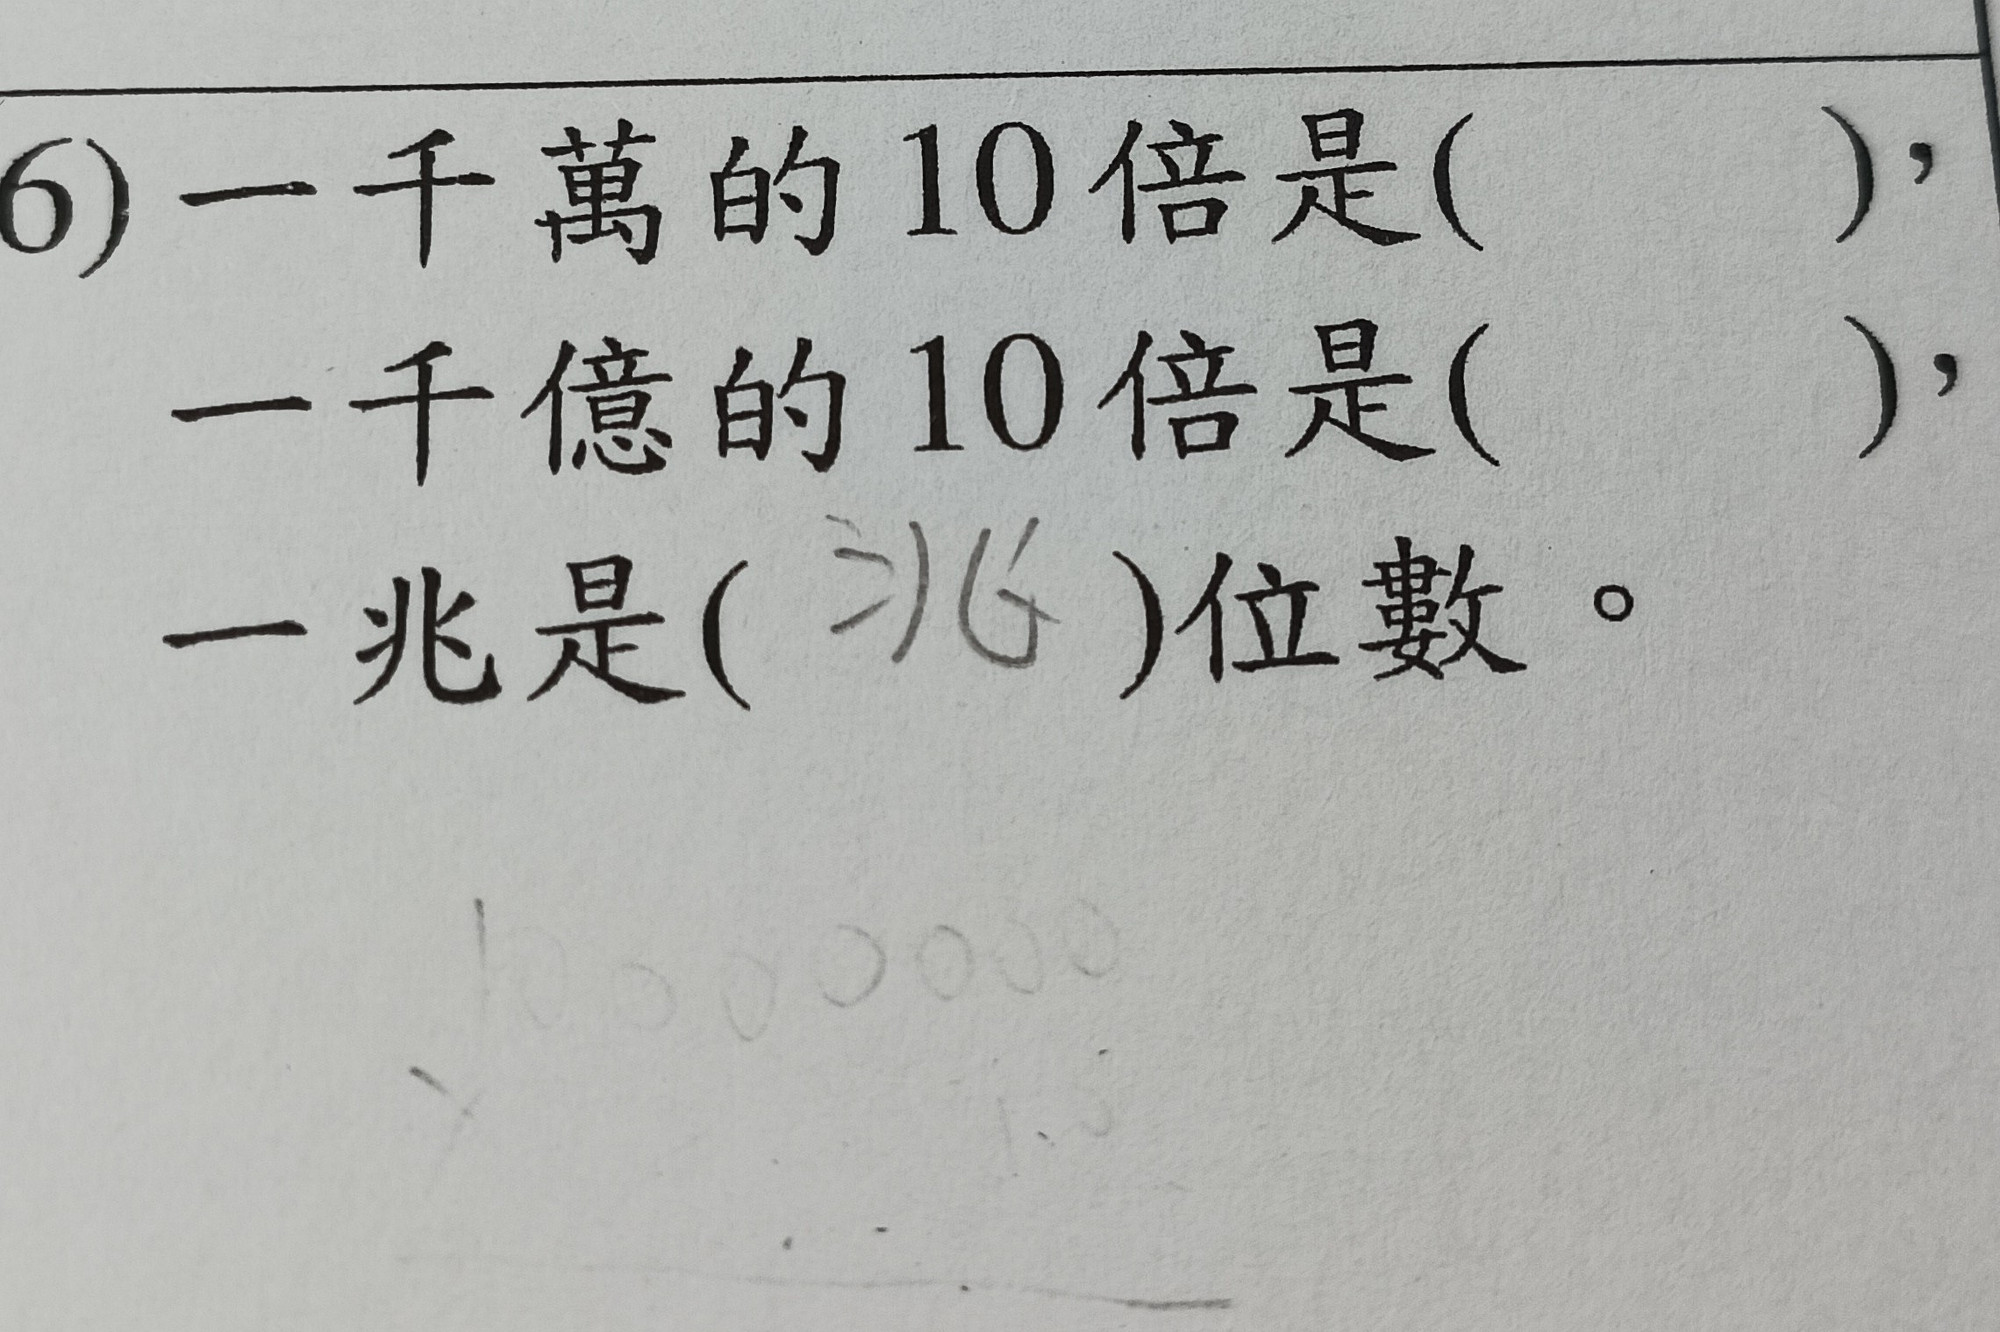 6) 一千萬的10倍是(          ),
一千億的10倍是(          ),
一兆是( 兆 )位數。
10000000
× 10